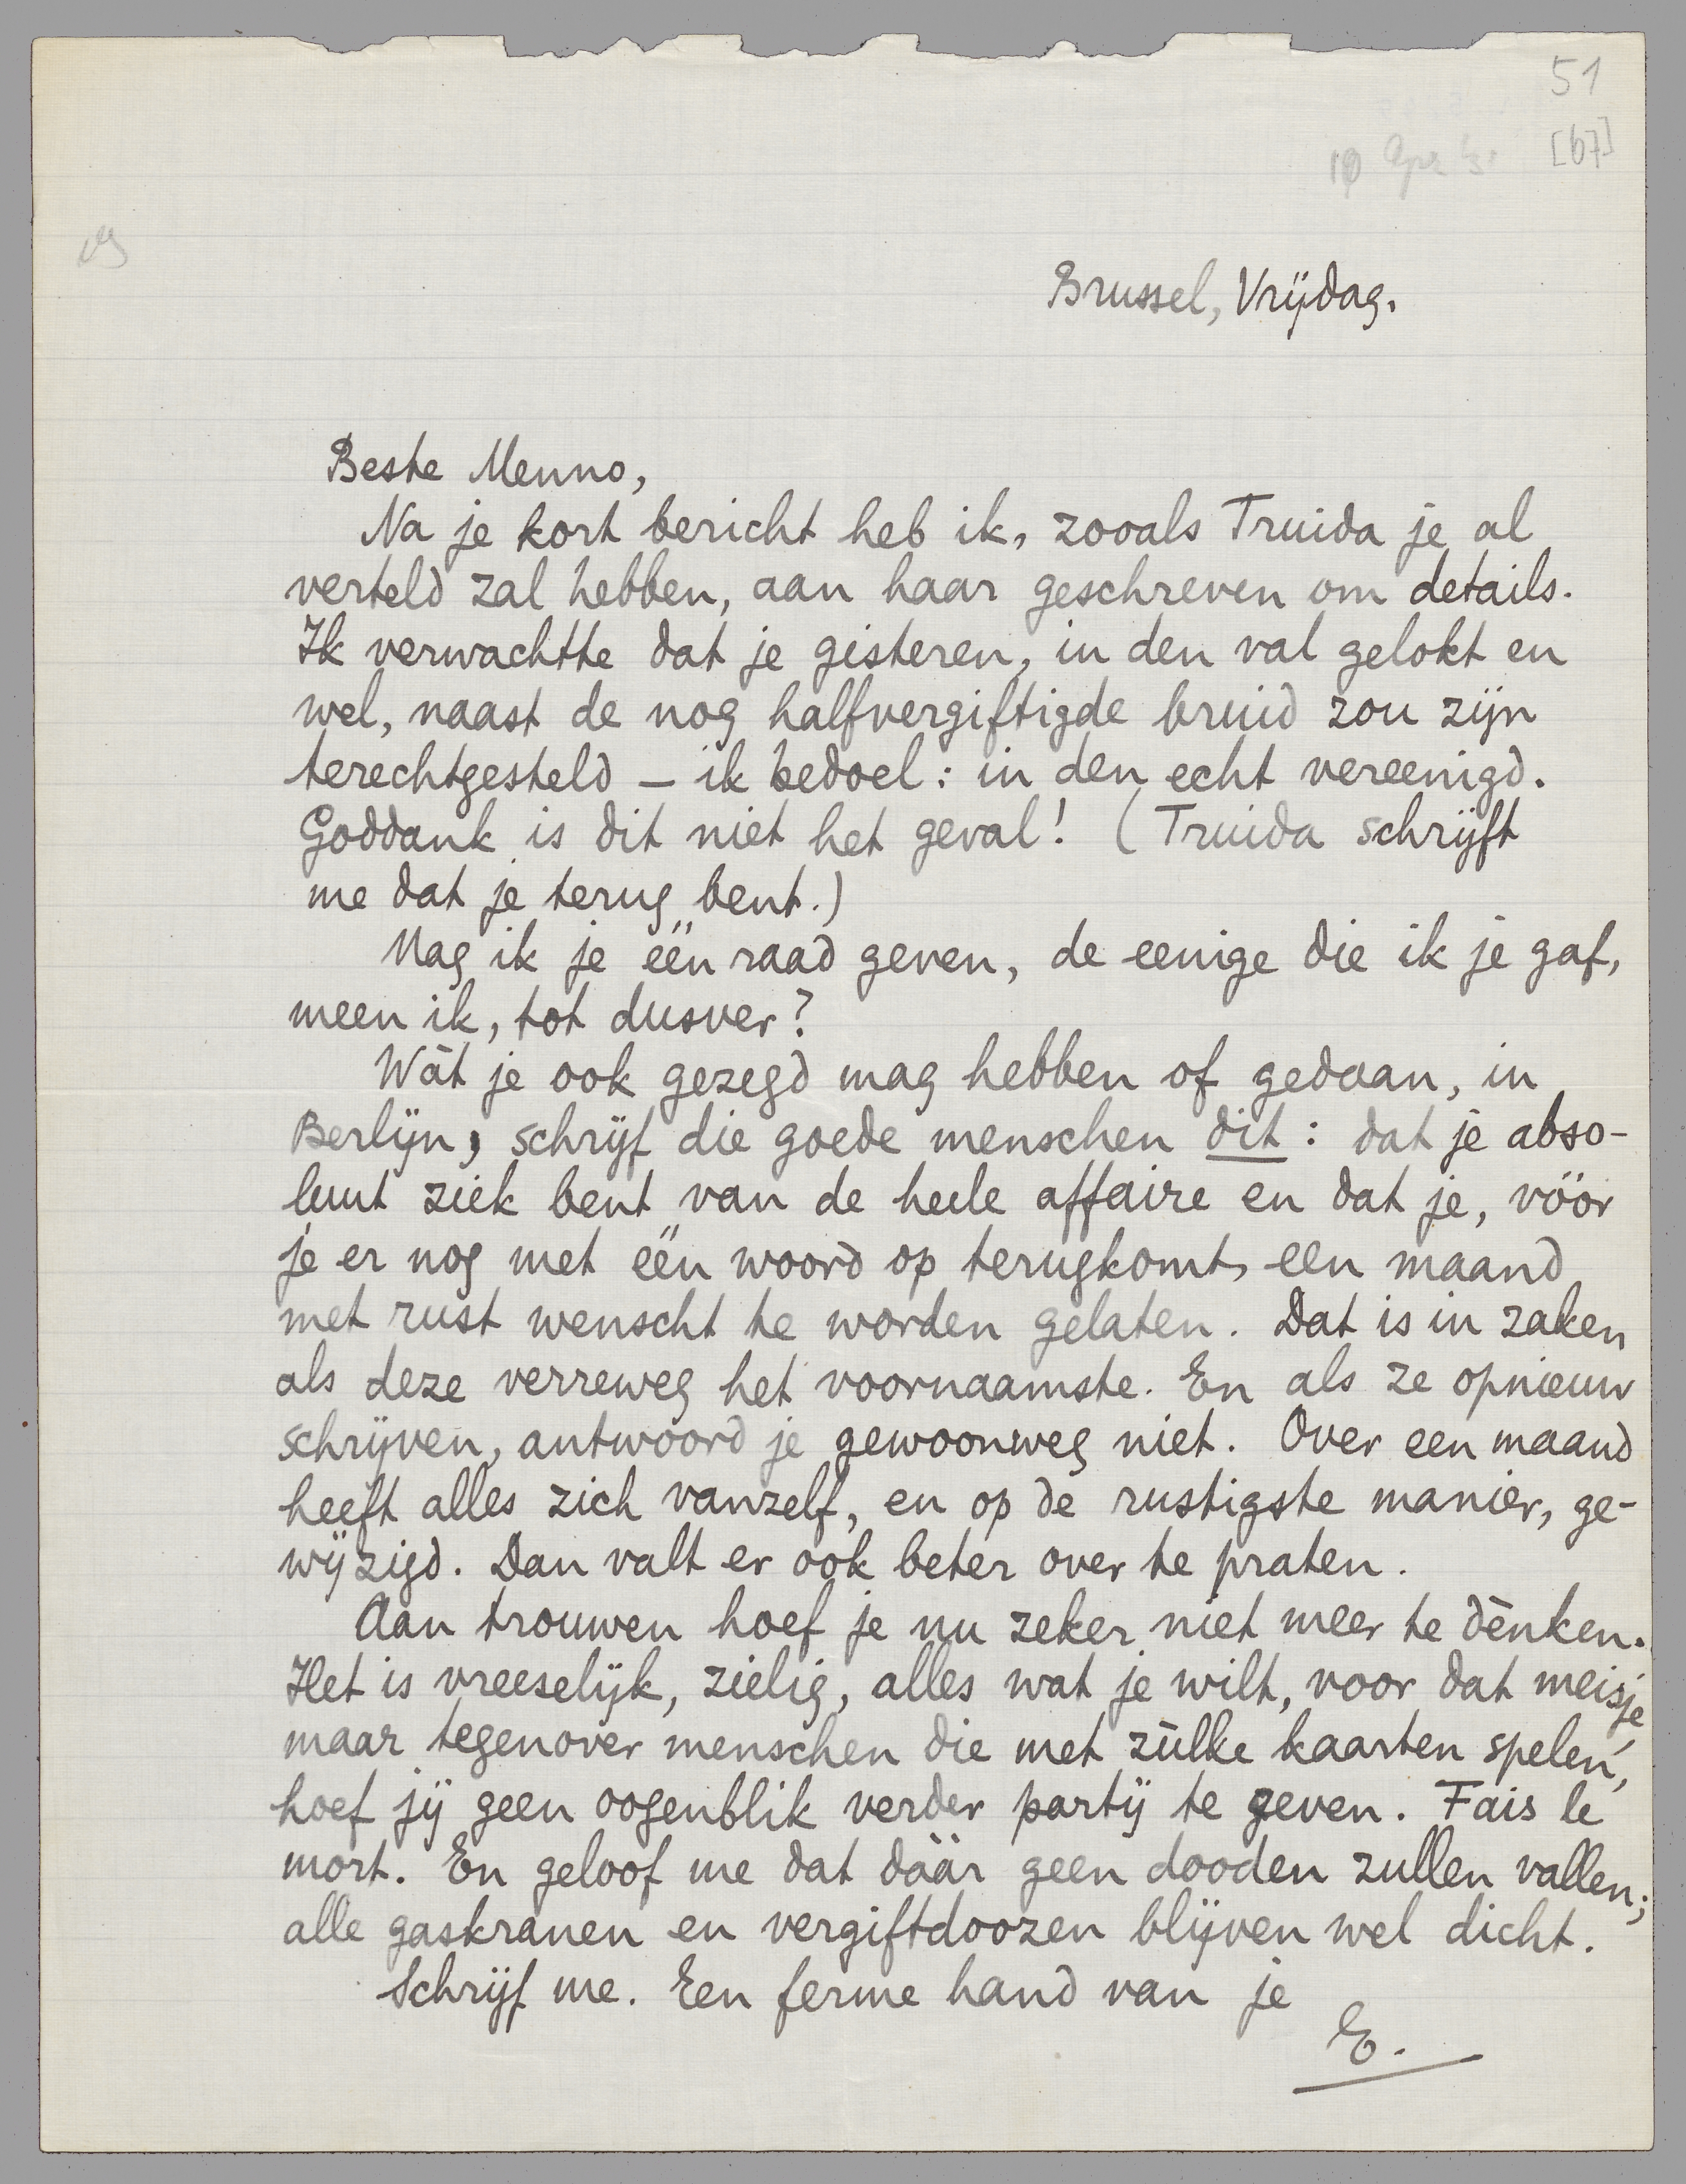 51
[67]
Brussel, Vrijdag.
Beste Menno,
Na je kort bericht heb ik, zooals Truida je al
verteld zal hebben, aan haar geschreven om details.
Ik verwachtte dat je gisteren, in den val gelokt en
wel, naast de nog halfvergiftigde bruid zou zijn
terechtgesteld – ik bedoel: in den echt vereenigd.
Goddank is dit niet het geval! (Truida schrijft
me dat je terug bent.)
Mag ik je één raad geven, de eenige die ik je gaf,
meen ik, tot dusver?
Wàt je ook gezegd mag hebben of gedaan, in
Berlijn, schrijf die goede menschen dit: dat je abso-
luut ziek bent van de heele affaire en dat je, vóór
je er nog met één woord op terugkomt, een maand
met rust wenscht te worden gelaten. Dat is in zaken
als deze verreweg het voornaamste. En als ze opnieuw
schrijven, antwoord je gewoonweg niet. Over een maand
heeft alles zich vanzelf, en op de rustigste manier, ge-
wijzigd. Dan valt er ook beter over te praten.
Aan trouwen hoef je nu zeker niet meer te dènken.
Het is vreeselijk, zielig, alles wat je wilt, voor dat meisje,
maar tegenover menschen die met zùlke kaarten spelen,
hoef jij geen oogenblik verder partij te geven. Fais le
mort. En geloof me dat dáár geen dooden zullen vallen;
alle gaskranen en vergiftdoozen blijven wel dicht.
Schrijf me. Een ferme hand van je
E.